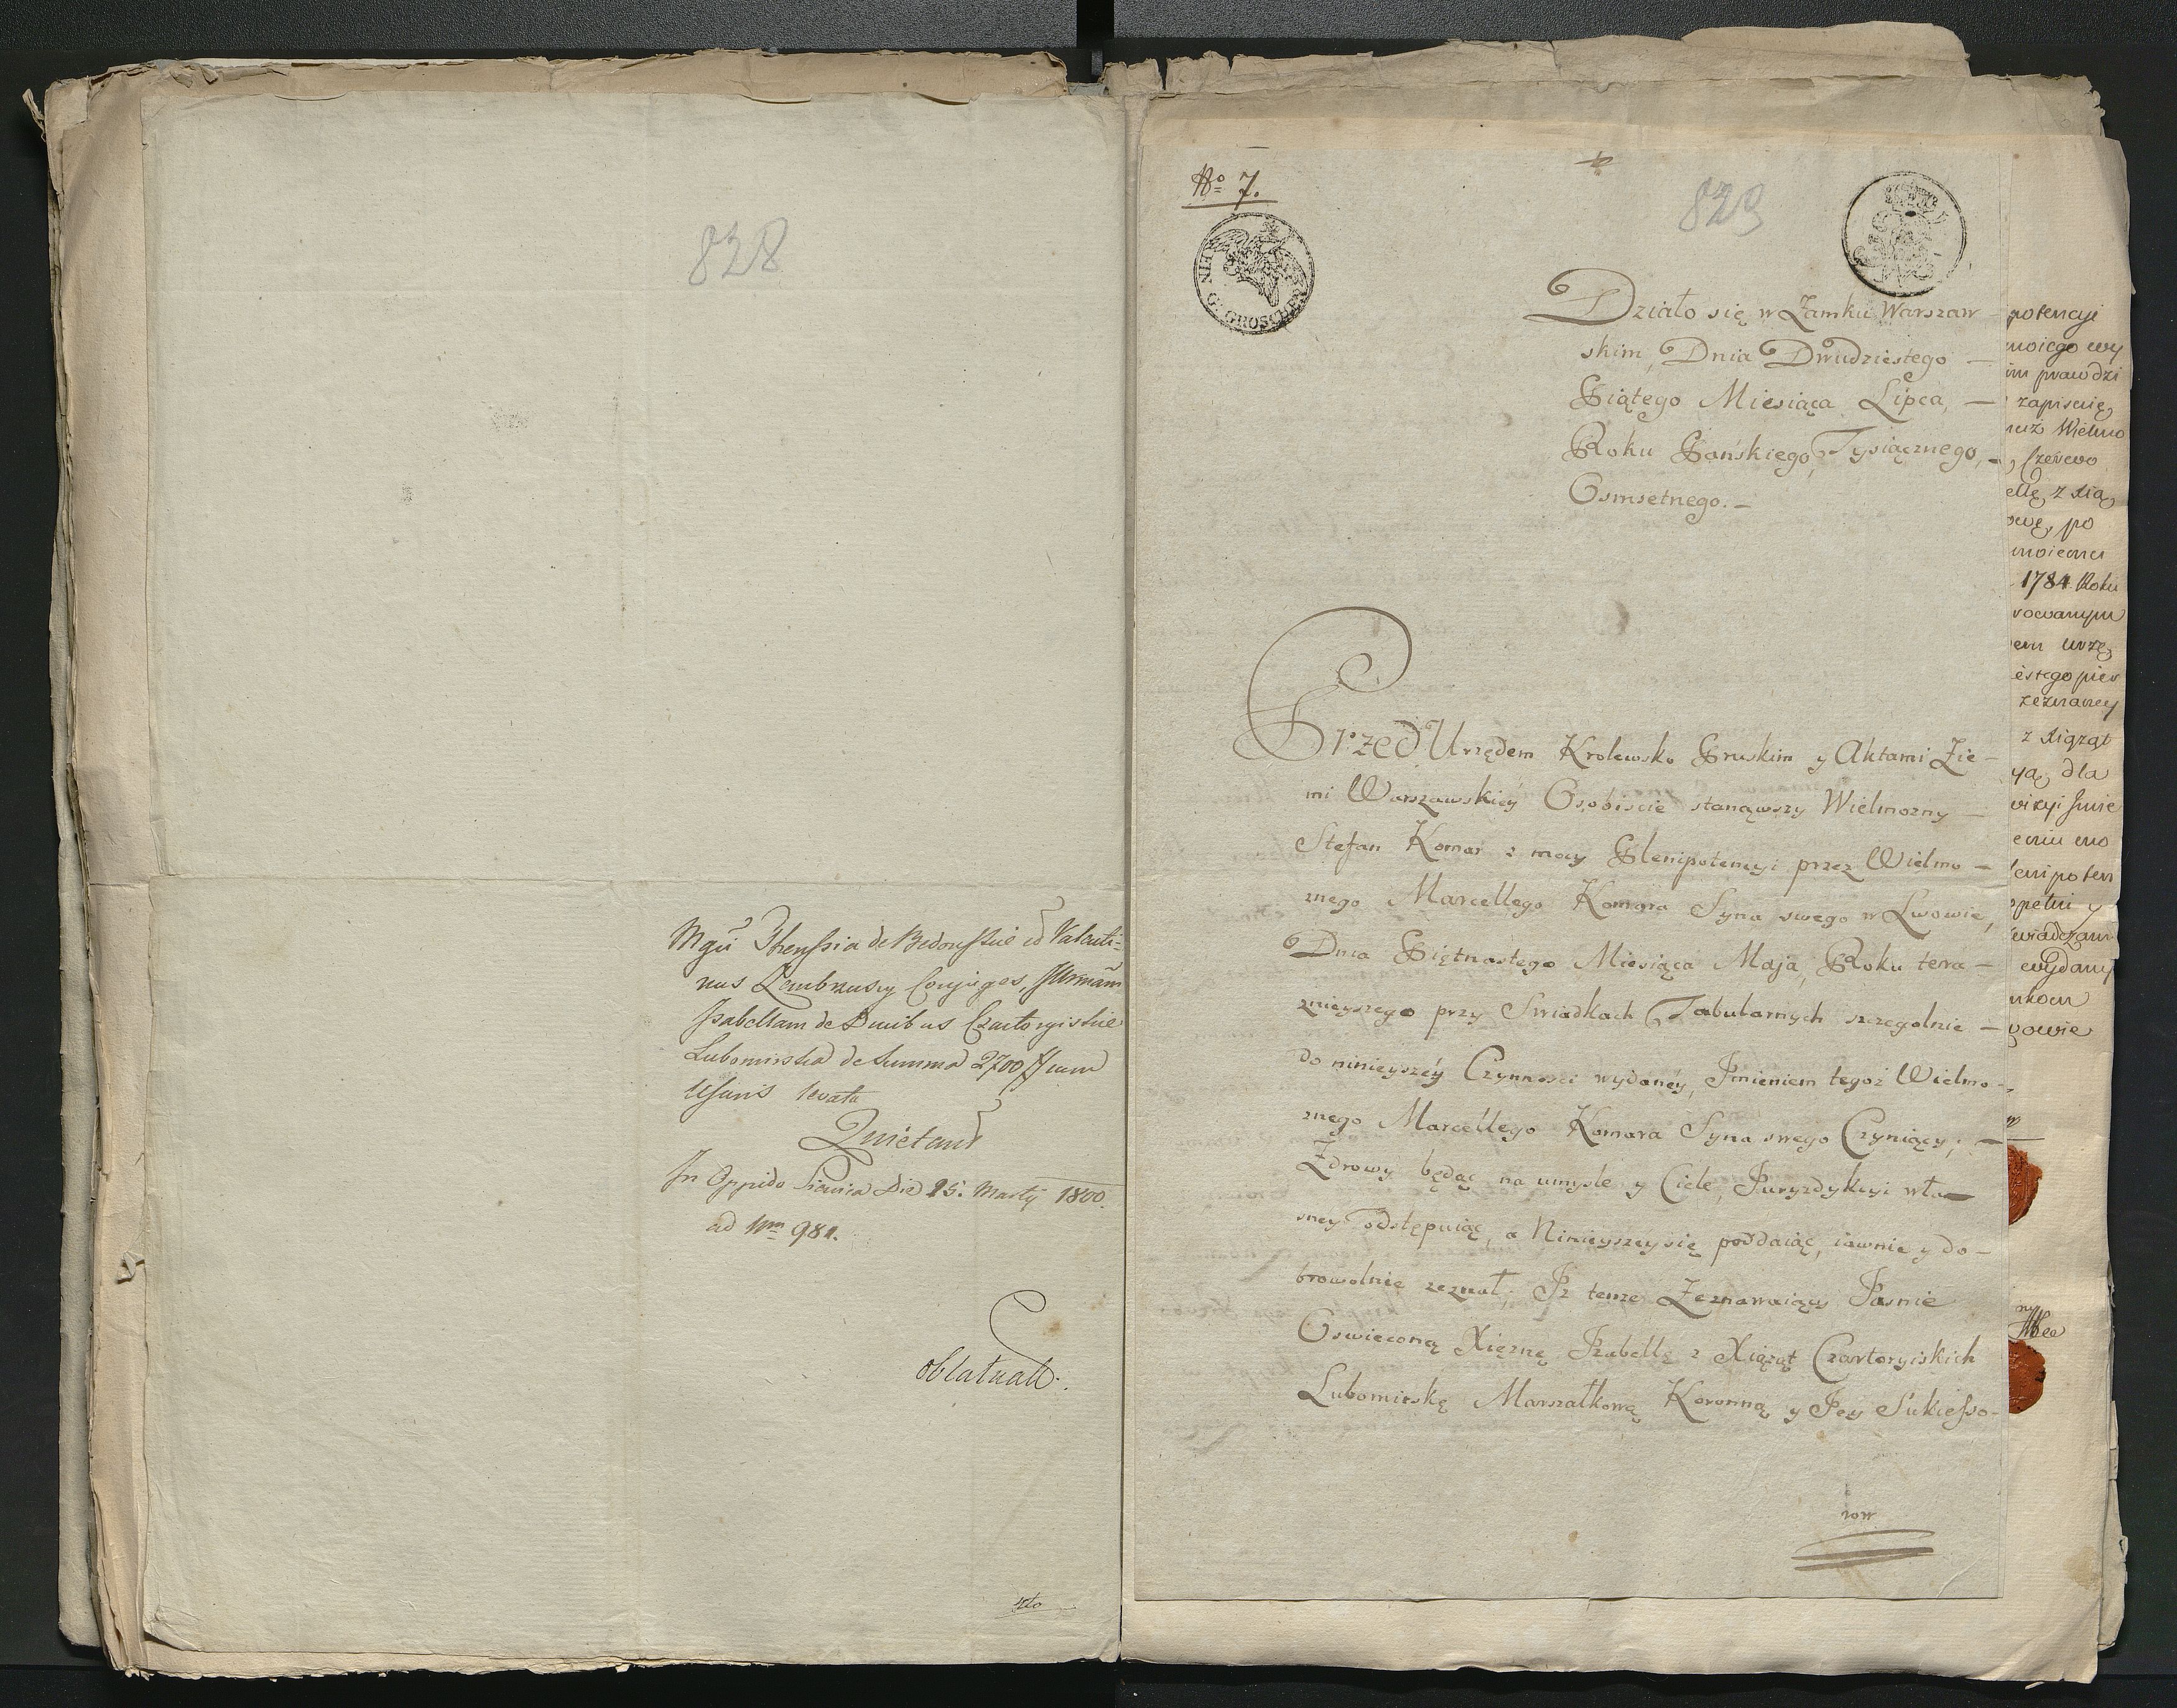 828
Mgŭ Theressia de Bedonskie et Valenti=
nus Zembrusey Conjuges,
Isabellam de Ducibus Czartoryiskie
Lubomirska de Summa 2700 cum
Usuris levata
Quietant
In Oppido Sieniea Die 15. Martij 1800.
ad Nrm 981.
Oblatuatt.
No 7.
823
G. GROSCHEN
Działo się w Zamku Warszaw –
skim, Dnia Dwudziestego –
Piątego Miesiąca Lipca, –
Roku Pańskiego, Tysiącznego, –
Osmsetnego. –
Przed Urzędem Krolewsko Pruskim y Aktami Zie –
mi Warszawskiey Osobiscie stanąwszy Wielmozny –
Stefan Komar z mocy Plenipotencyi przez Wielmo –
znego Marcellego Komara Syna swego w Lwowie,
Dnia Piętnastego Miesiąca Maja, Roku tera –
znieyszego przy Swiadkach Tabularnych szczegolnie –
do ninieyszéy Czynnosci wydanéy, Imieniem tegoż Wielmo –
znego Marcellego Komara Syna swego Czyniący; –
Zdrowy będąc na umysle y Ciele, Juryzdykcyi wła –
sney odstępuiąc, a Ninieyszey się poddaiąc, iawnie y do –
browolnie zeznał; Iz tenze Zeznawaiący Jasnie
Oswieconą Xięznę Izabellę z Xiąząt Czartoryiskich
Lubomirską Marszałkową Koronną y Jey Sukcesso –
row
potencyi
moiego wy
im prawdzi
zapisuię
nuz Wielmo
, Czerwo
ellę z Xią
owę, po
moiemu
1784 Roku
rowanym
em urzę
iestego pier
zeznaney
z Xiąząt
yą dla
wizyi
eniu mo
lenipoten
pełni y
wiadczam
wydany
nkow
wowie